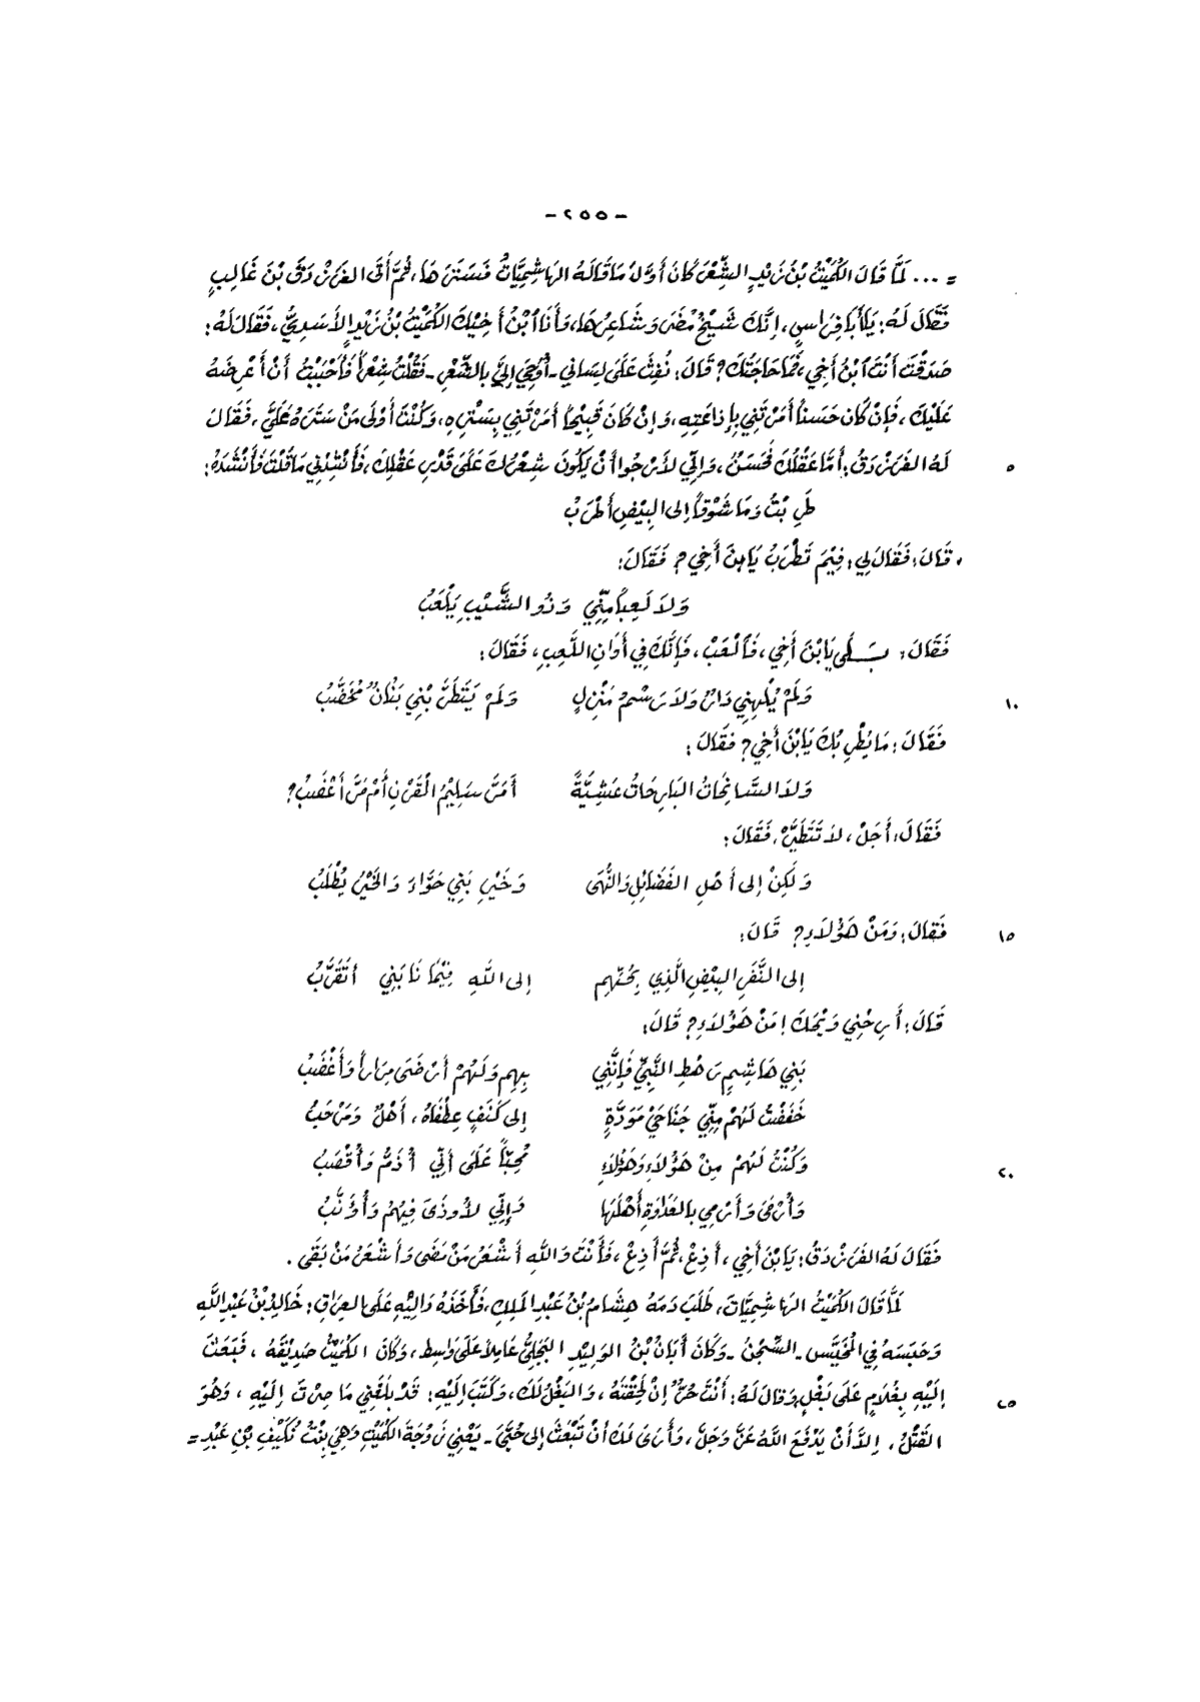 - ٢٥٥ -
= ... لَمَّا قَالَ الكُمَيْتُ بْنُ زَيْدٍ الشِّعْرَ كَانَ أَوَّلَ مَا قَالَهُ الهَاشِمِيَّاتُ فَسَتَرَهَا، ثُمَّ أَتَى الفَرَزْدَقَ بْنَ غَالِبٍ
فَقَالَ لَهُ: يَا أَبَا فِرَاسٍ، إِنَّكَ شَيْخُ مُضَرَ وَشَاعِرُهَا، وَأَنَا ابْنُ أَخِيْكَ الكُمَيْتُ بْنُ زَيْدٍ الأَسَدِيُّ، فَقَالَ لَهُ:
صَدَقْتَ أَنْتَ ابْنُ أَخِي، فَمَا حَاجَتُكَ؟ قَالَ: نُفِثَ عَلَى لِسَانِي - أُوْحِيَ إِلَيَّ بِالشِّعْرِ - فَقُلْتُ شِعْراً فَأَحْبَبْتُ أَنْ أَعْرِضَهُ
عَلَيْكَ، فَإِنْ كَانَ حَسَناً أَمَرْتَنِي بِإِذَاعَتِهِ، وَإِنْ كَانَ قَبِيْحاً أَمَرْتَنِي بِسَتْرِهِ، وَكُنْتَ أَوْلَى مَنْ سَتَرَهُ عَلَيَّ، فَقَالَ
لَهُ الفَرَزْدَقُ: أَمَّا عَقْلُكَ فَحَسَنٌ، وَإِنِّي لأَرْجُو أَنْ يَكُونَ شِعْرُكَ عَلَى قَدْرِ عَقْلِكَ، فَأَنْشِدْنِي مَا قُلْتَ فَأَنْشَدَهُ: ٥
طَرِبْتُ وَمَا شَوْقاً إِلى البِيْضِ أَطْرَبُ
، قَالَ: فَقَالَ لِي: فِيْمَ تَطْرَبُ يَا بنَ أَخِي؟ فَقَالَ:
وَلاَ لَعِباً مِنِّي وَذُو الشَّيْبِ يَلْعَبُ
فَقَالَ: بَلَى يَا بْنَ أَخِي، فَالْعَبْ، فَإِنَّكَ فِي أَوَانِ اللَّعِبِ، فَقَالَ:
وَلَمْ يُلْهِنِي دَارٌ وَلاَ رَسْمُ مَنْزِلٍ وَلَمْ يَتَطَرَّبْنِي بَنَانٌ مُخَضَّبُ ١٠
فَقَالَ: مَا يُطْرِبُكَ يَا بْنَ أَخِي؟ فَقَالَ:
وَلاَ السَّانِحَاتُ البَارِحَاتُ عَشِيَّةً أَمَرَّ سَلِيْمُ الْقَرْنِ أَمْ مَرَّ أَعْضَبُ؟
فَقَالَ: أَجَلْ، لاَ تَتَطَيَّرْ، فَقَالَ:
وَلَكِنْ إِلى أَهْلِ الفَضَائِلِ وَالنُّهَى وَخَيْرِ بَنِي حَوَّاءَ وَالخَيْرُ يُطْلَبُ
فَقَالَ: وَمَنْ هَؤُلاَءِ؟ قَالَ: ١٥
إِلى النَّفَرِ البِيْضِ الَّذِي بِحُبِّهِم إِلى اللهِ فِيْمَا نَابَنِي أَتَقَرَّبُ
قَالَ: أَرِحْنِي وَيْحَكَ! مَنْ هَؤُلاَءِ؟ قَالَ:
بَنِي هَاشِمٍ رَهْطِ النَّبِيِّ فَإِنَّنِي بِهِم وَلَهُمْ أَرْضَى مِرَاراً وَأَغْضَبُ
خَفَضْتُ لَهُمْ مِنِّي جَنَاحَيْ مَوَدَّةٍ إِلى كَنَفٍ عِطْفَاهُ، أَهْلٌ وَمَرْحَبُ
وَكُنْتُ لَهُمْ مِنْ هَؤُلاَءِ وَهَؤُلاَءِ مُحِبّاً عَلَى أَنِّي أُذَمُّ وَأُقْصَبُ ٢٠
وَأُرْمَى وَأَرْمِي بِالعَدَاوَةِ أَهْلَهَا وَإِنِّي لأُوذَى فِيْهِمُ وَأُؤَنَّبُ
فَقَالَ لَهُ الفَرَزْدَقُ: يَا بْنَ أَخِي، أَذِعْ، ثُمَّ أَذِعْ، فَأَنْتَ وَاللهِ أَشْعَرُ مَنْ مَضَى وَأَشْعَرُ مَنْ بَقَى.
لَمَّا قَالَ الكُمَيْتُ الهَاشِمِيَّاتَ، طَلَبَ دَمَهُ هِشَامُ بْنُ عَبْدِ المَلِكِ، فَأَخَذَهُ وَالِيْهِ عَلَى العِرَاقِ: خَالِدُ بْنُ عَبْدِ اللهِ
وَحَبَسَهُ فِي الْمُخَيَّسِ - السِّجْنُ - وَكَانَ أَبَانُ بْنُ الوَلِيْدِ البَجَلِيُّ عَامِلاً عَلَى وَاسِطَ، وَكَانَ الكُمَيْتُ صَدِيْقَهُ، فَبَعَثَ
إِلَيْهِ بِغُلاَمٍ عَلَى بَغْلٍ وَقَالَ لَهُ: أَنْتَ حُرٌّ إِنْ لَحِقْتَهُ، وَالبَغْلُ لَكَ، وَكَتَبَ إِلَيْهِ: قَدْ بَلَغَنِي مَا صِرْتَ إِلَيْهِ، وَهُوَ ٢٥
القَتْلُ، إِلاَّ أَنْ يَدْفَعَ اللهُ عَزَّ وَجَلَّ، وَأَرَى لَكَ أَنْ تَبْعَثَ إِلى حُبَّى - يَعْنِي زَوْجَةَ الكُمَيْتِ وَهِيَ بِنْتُ نُكَيْفِ بْنِ عَبْدِ =